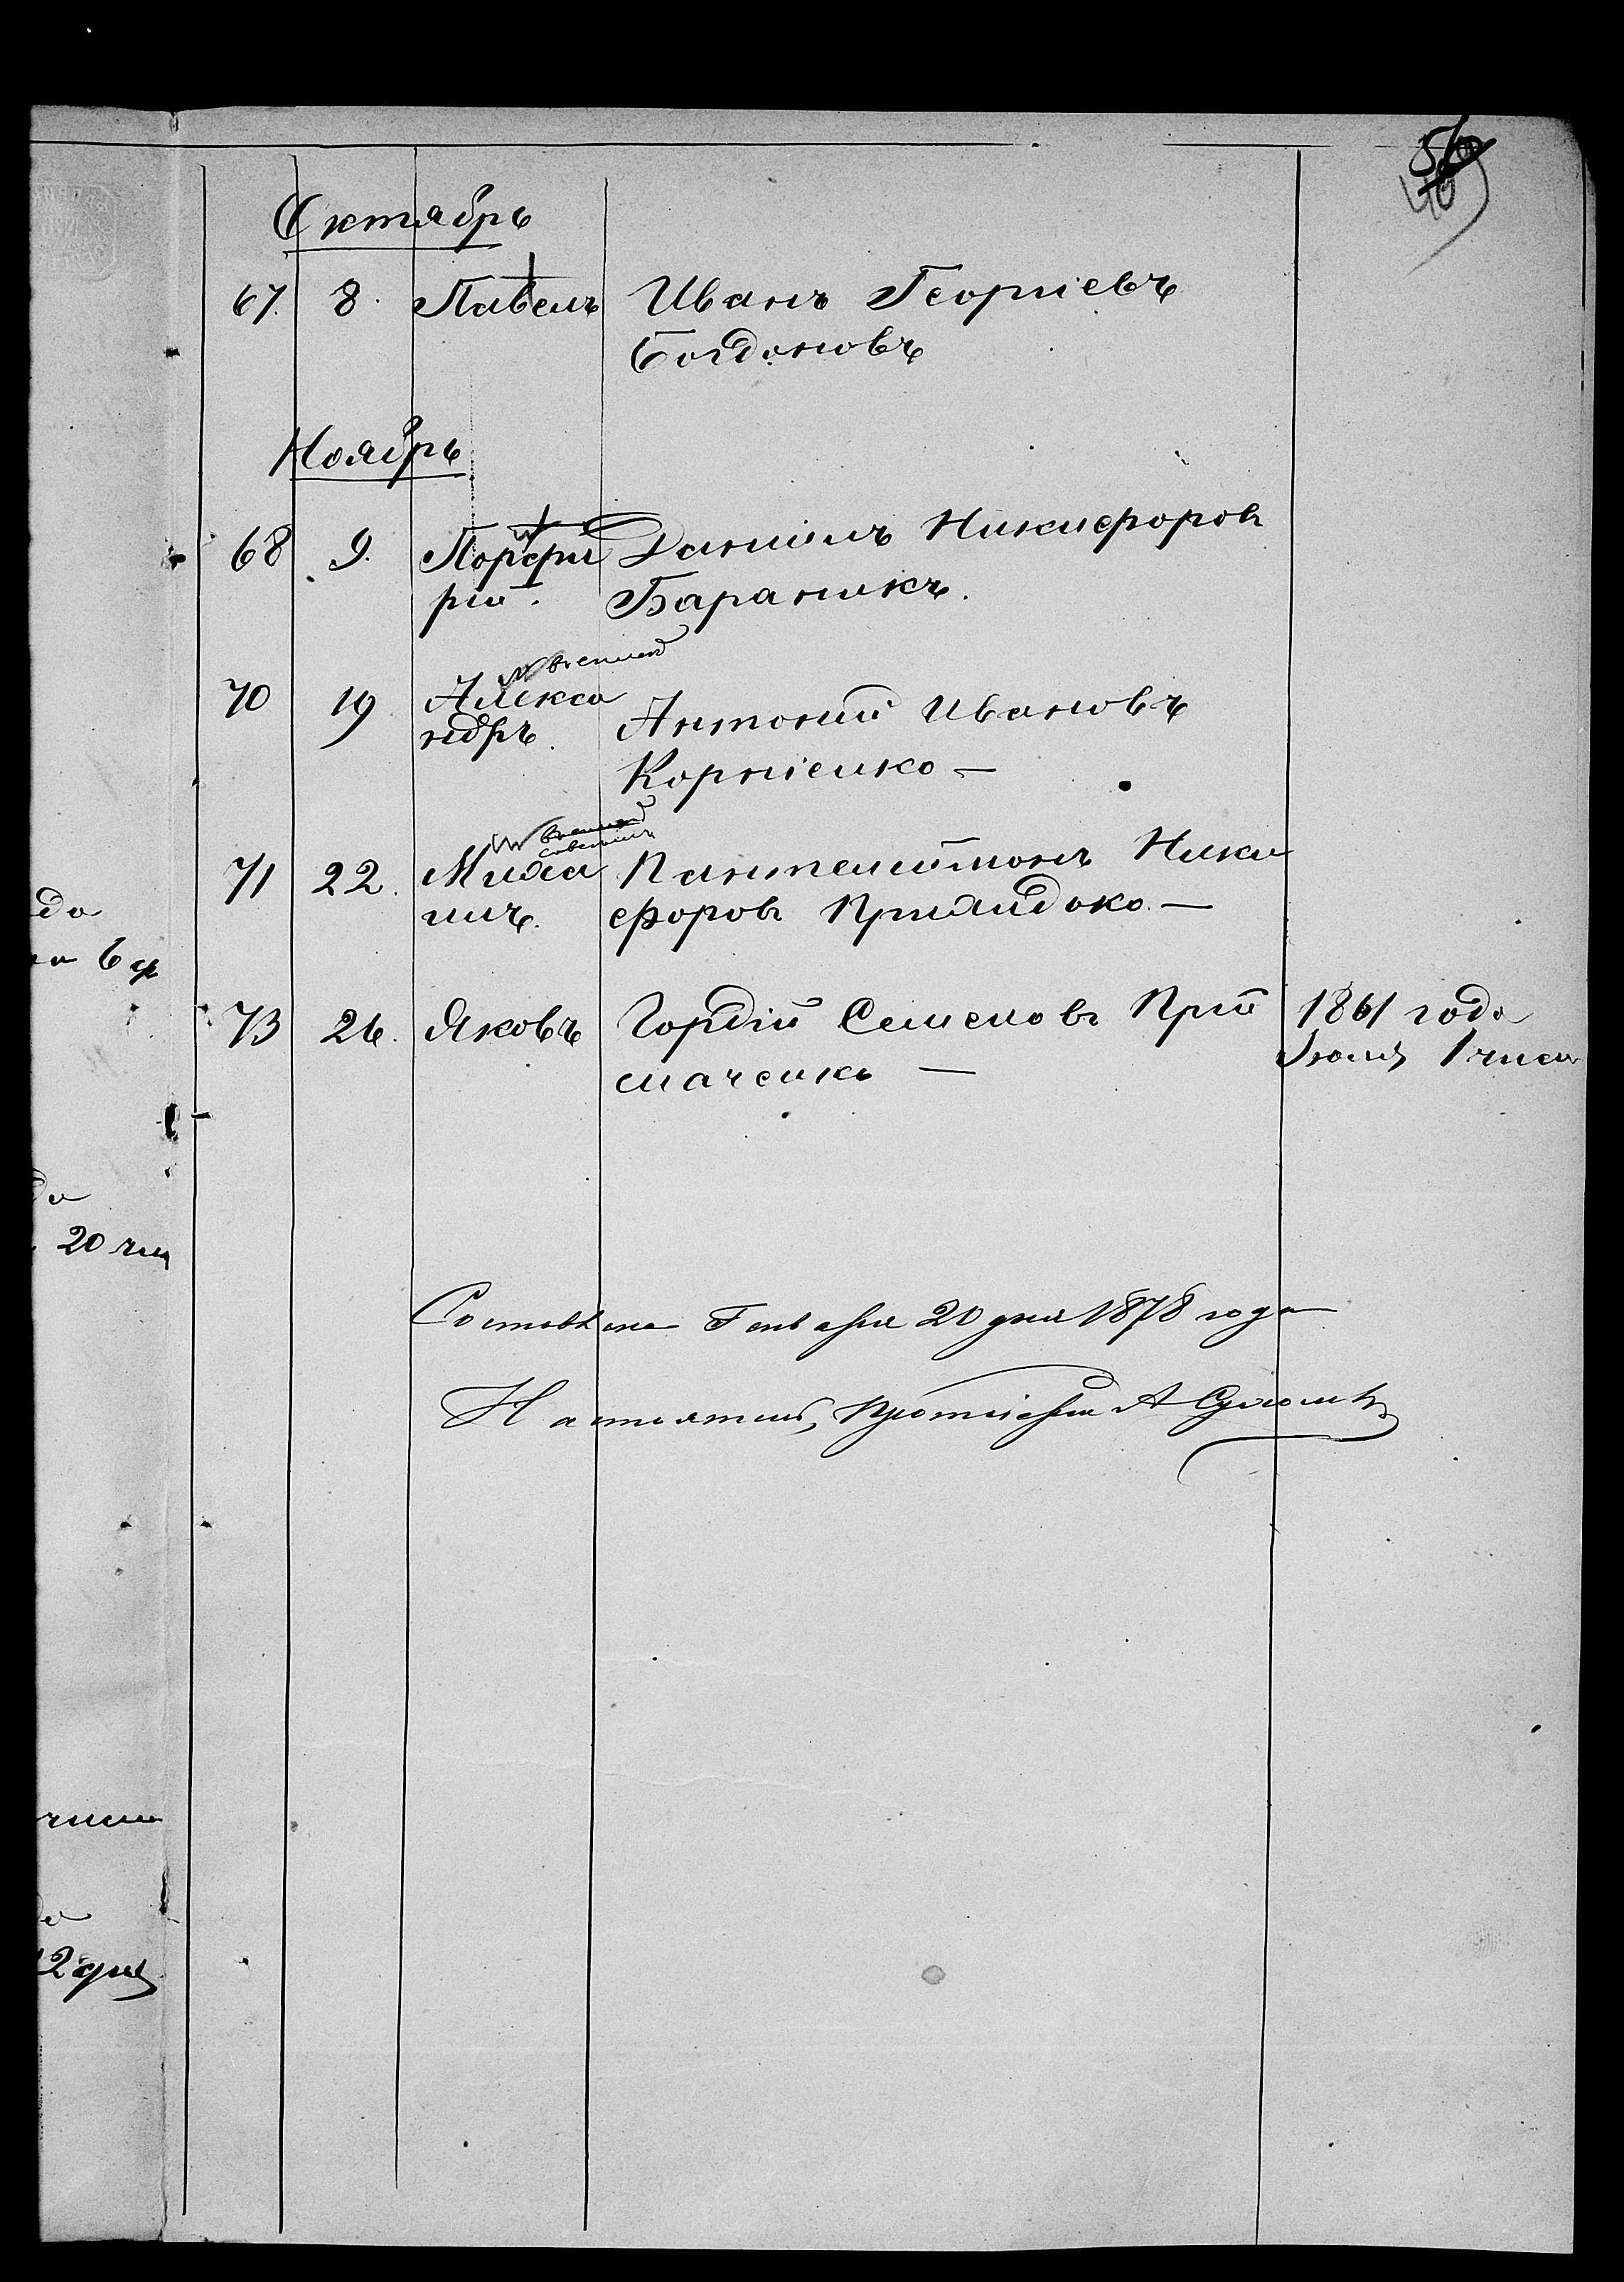 56
409
Октябрь
67. 8. Павелъ Иванъ Георгіевъ
Богдановъ
Ноябрь
68 9. Порфи Даніилъ Никифоровъ
рій. Бараникъ.
70 19 Алекса
ндръ. Антоній Ивановъ
Корніенко —
71 22. Михаи Пантелиймонъ Ники
илъ. форовъ Прихидько —
73 26. Яковъ Гордій Семеновъ Прій 1861 года
мченко — Іюля 1 числ
да
20 чи
Составлена Генваря 20 дня 1878 года
Настоятель, Протоіерей А
числ
12 дня